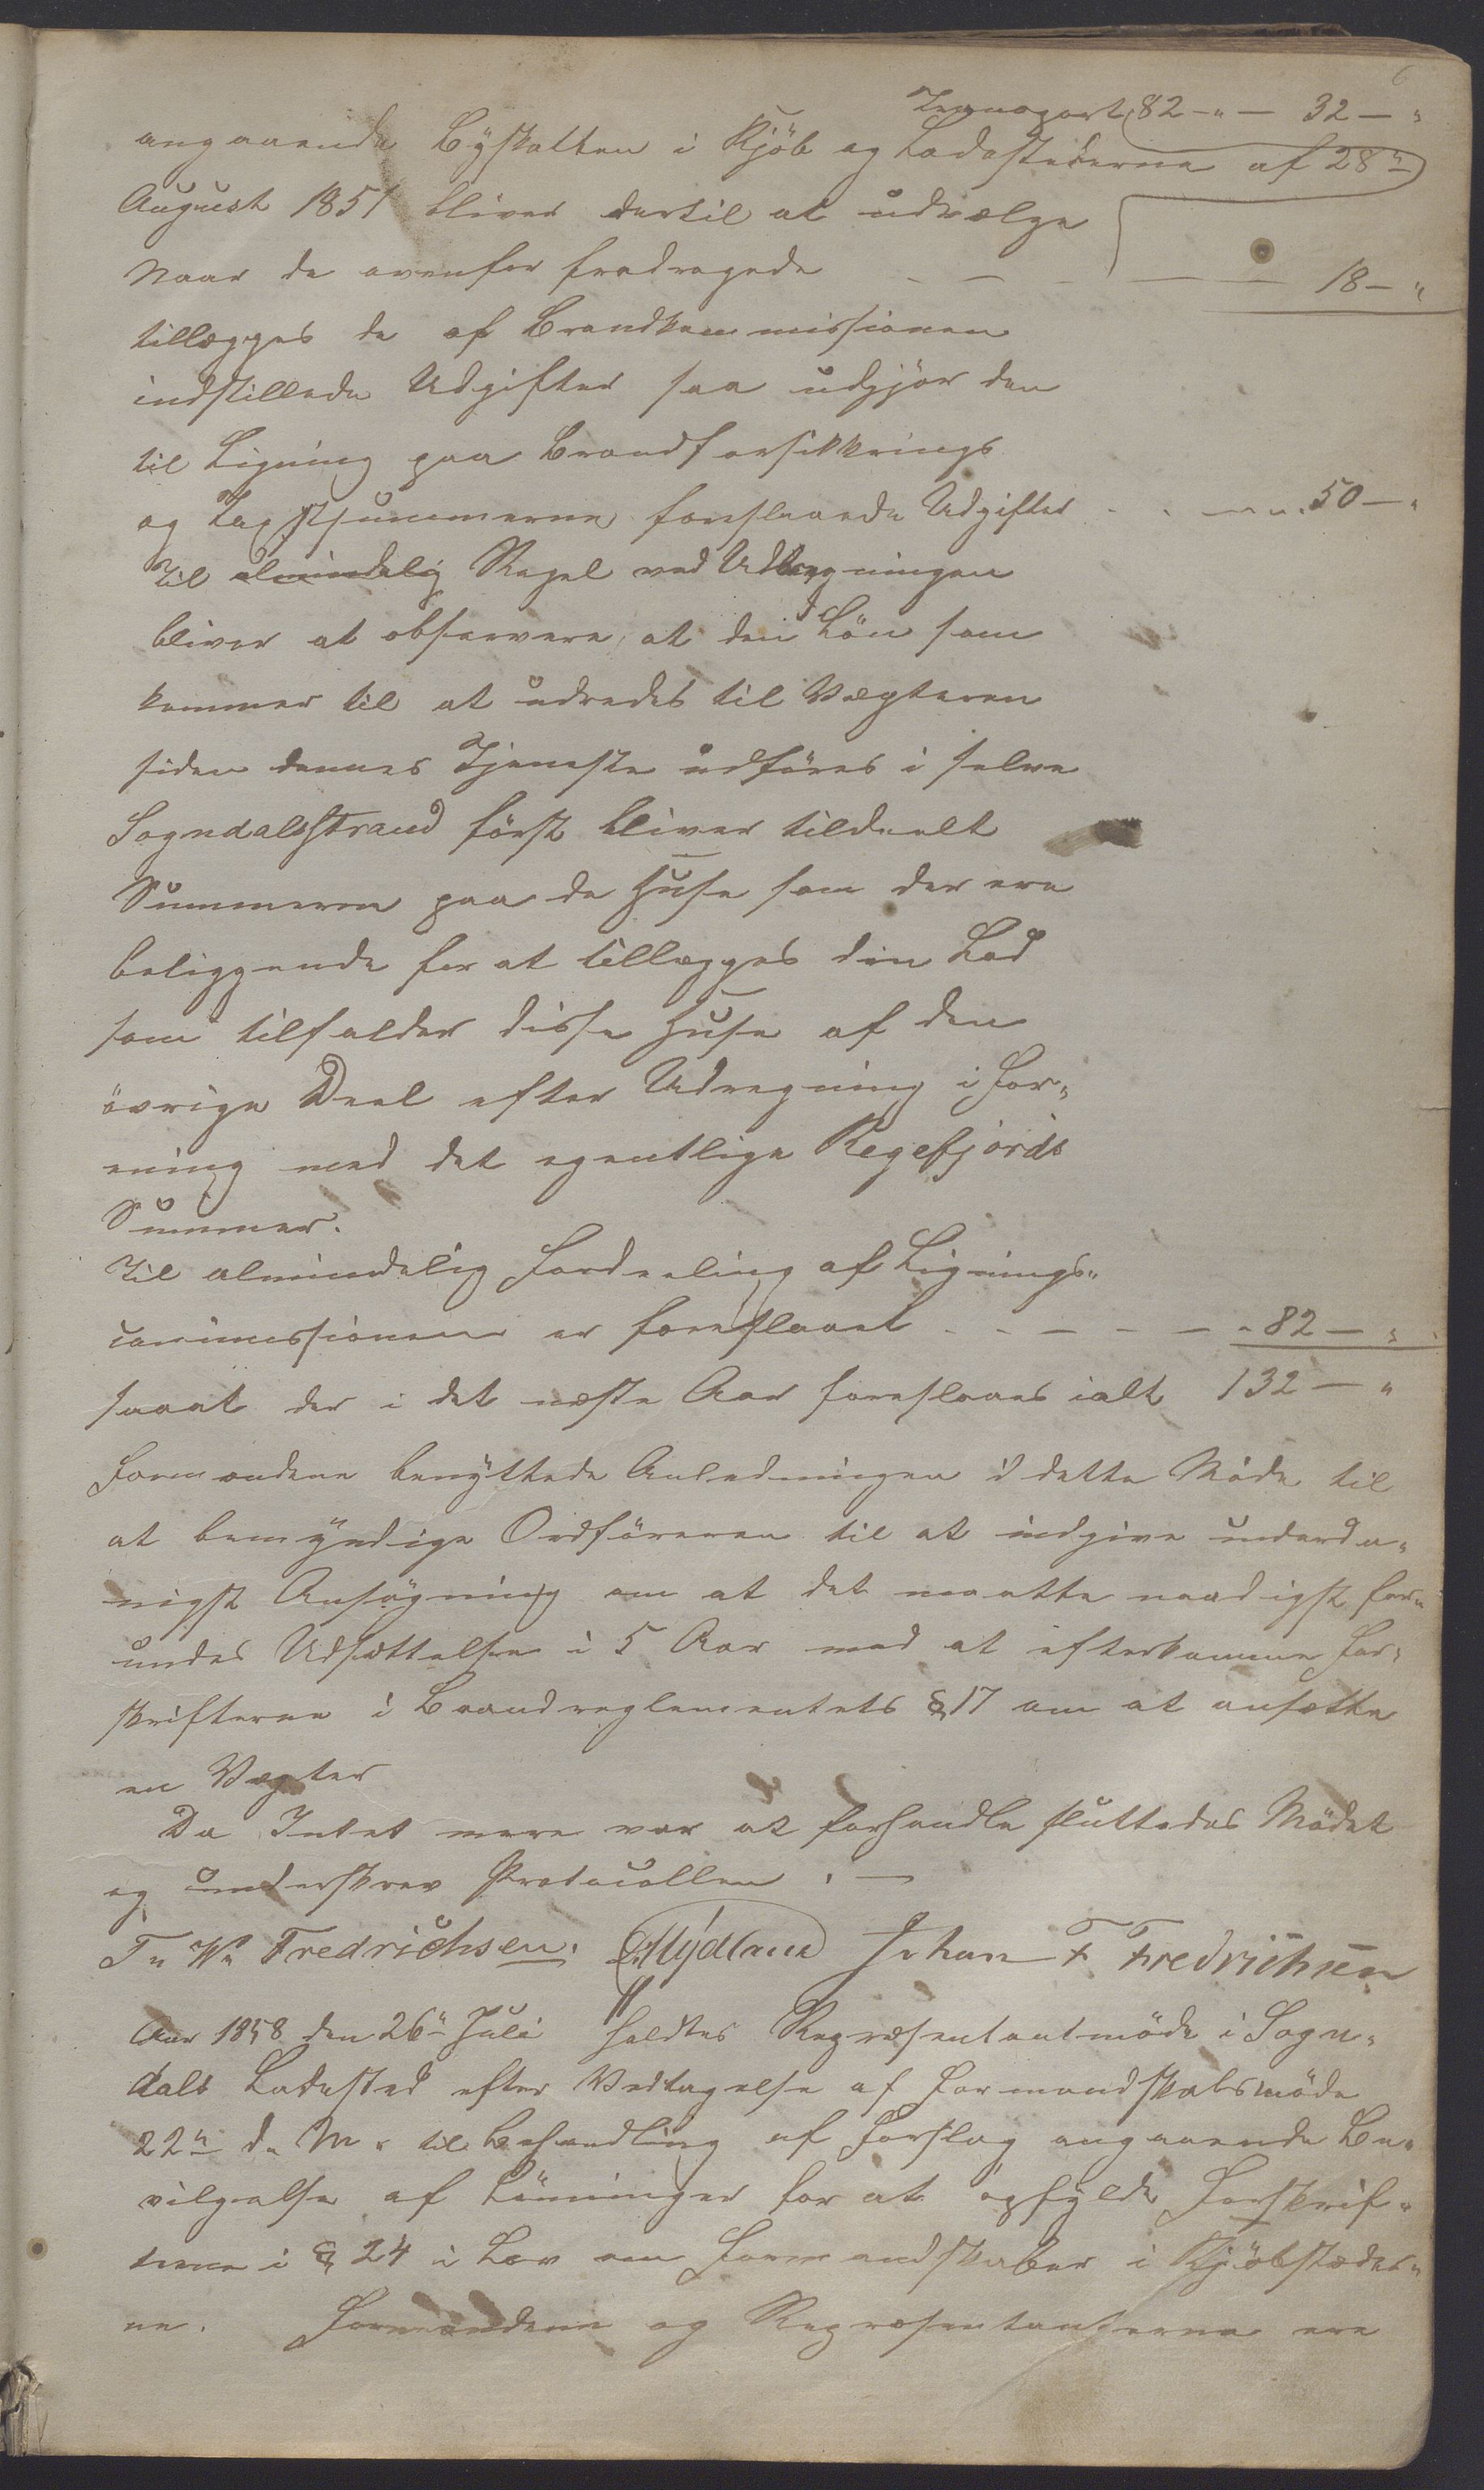 6
Transport 82 - " - 32 - "
angaaende Byskatten i Kjöb og Ladestederne af 28"
August 1851 bliver dertil at udvælge
Naar de ovenfor fradragede - - - - - 18 - "
tillægges de af Brandkommissionen
indstillede Udgifter saa udgjör den
til Ligning paa Brandforsikkrings
og Taxtsummerne foreslaaede Udgifter - - - " 50 - "
Til almindelig Regel ved Udregningen
bliver at observere, at den Lön som
kommer til at udredes til Vægteren
siden dennes Tjeneste udföres i selve
Sogndalsstrand först bliver tildeelt
Summerne paa de Huse som der ere
beliggende for at tillægges den Lod
som tilfalder disse Huse af den
övrige Deel efter Udregning i For-
ening med det egentlige Regefjords
Summer.
Til almindelig Fordeeling af Lignings-
commissionen er foreslaaet - - - - - " 82 - "
saaat der i det næste Aar foreslaaes ialt 132 - "
Formændene benyttede Anledningen i dette Möde til
at bemyndige Ordföreren til at indgive underda-
nigst Ansögning om at det maatte naadigst for-
undes Udsættelse i 5 Aar med at efterkomme For-
skrifterne i Brandreglementets § 17 om at ansætte
en Vægter
Da Intet mere var at forhandle sluttedes Mödet
og underskrev Protocollen. -
T. W. Fredrichsen. Mydland Johan F Fredrichsen
Aar 1858 den 26" Juli holdtes Repræsentantmöde i Sogn-
dals Ladested efter Vedtagelse af Formandskabsmöde
22" d. M. til Behandling af Forslag angaaende Be-
vilgelse af Lönninger for at opfylde Forskrif-
terne i § 24 i Lov om Formandskaber i Kjöbstæder-
ne. Formændene og Repræsentanterne ere